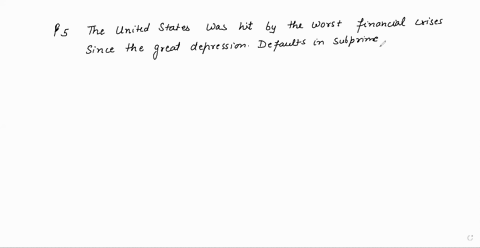 P5 The United States was hit by the worst financial crises
Since the great depression. Defaults in subprime